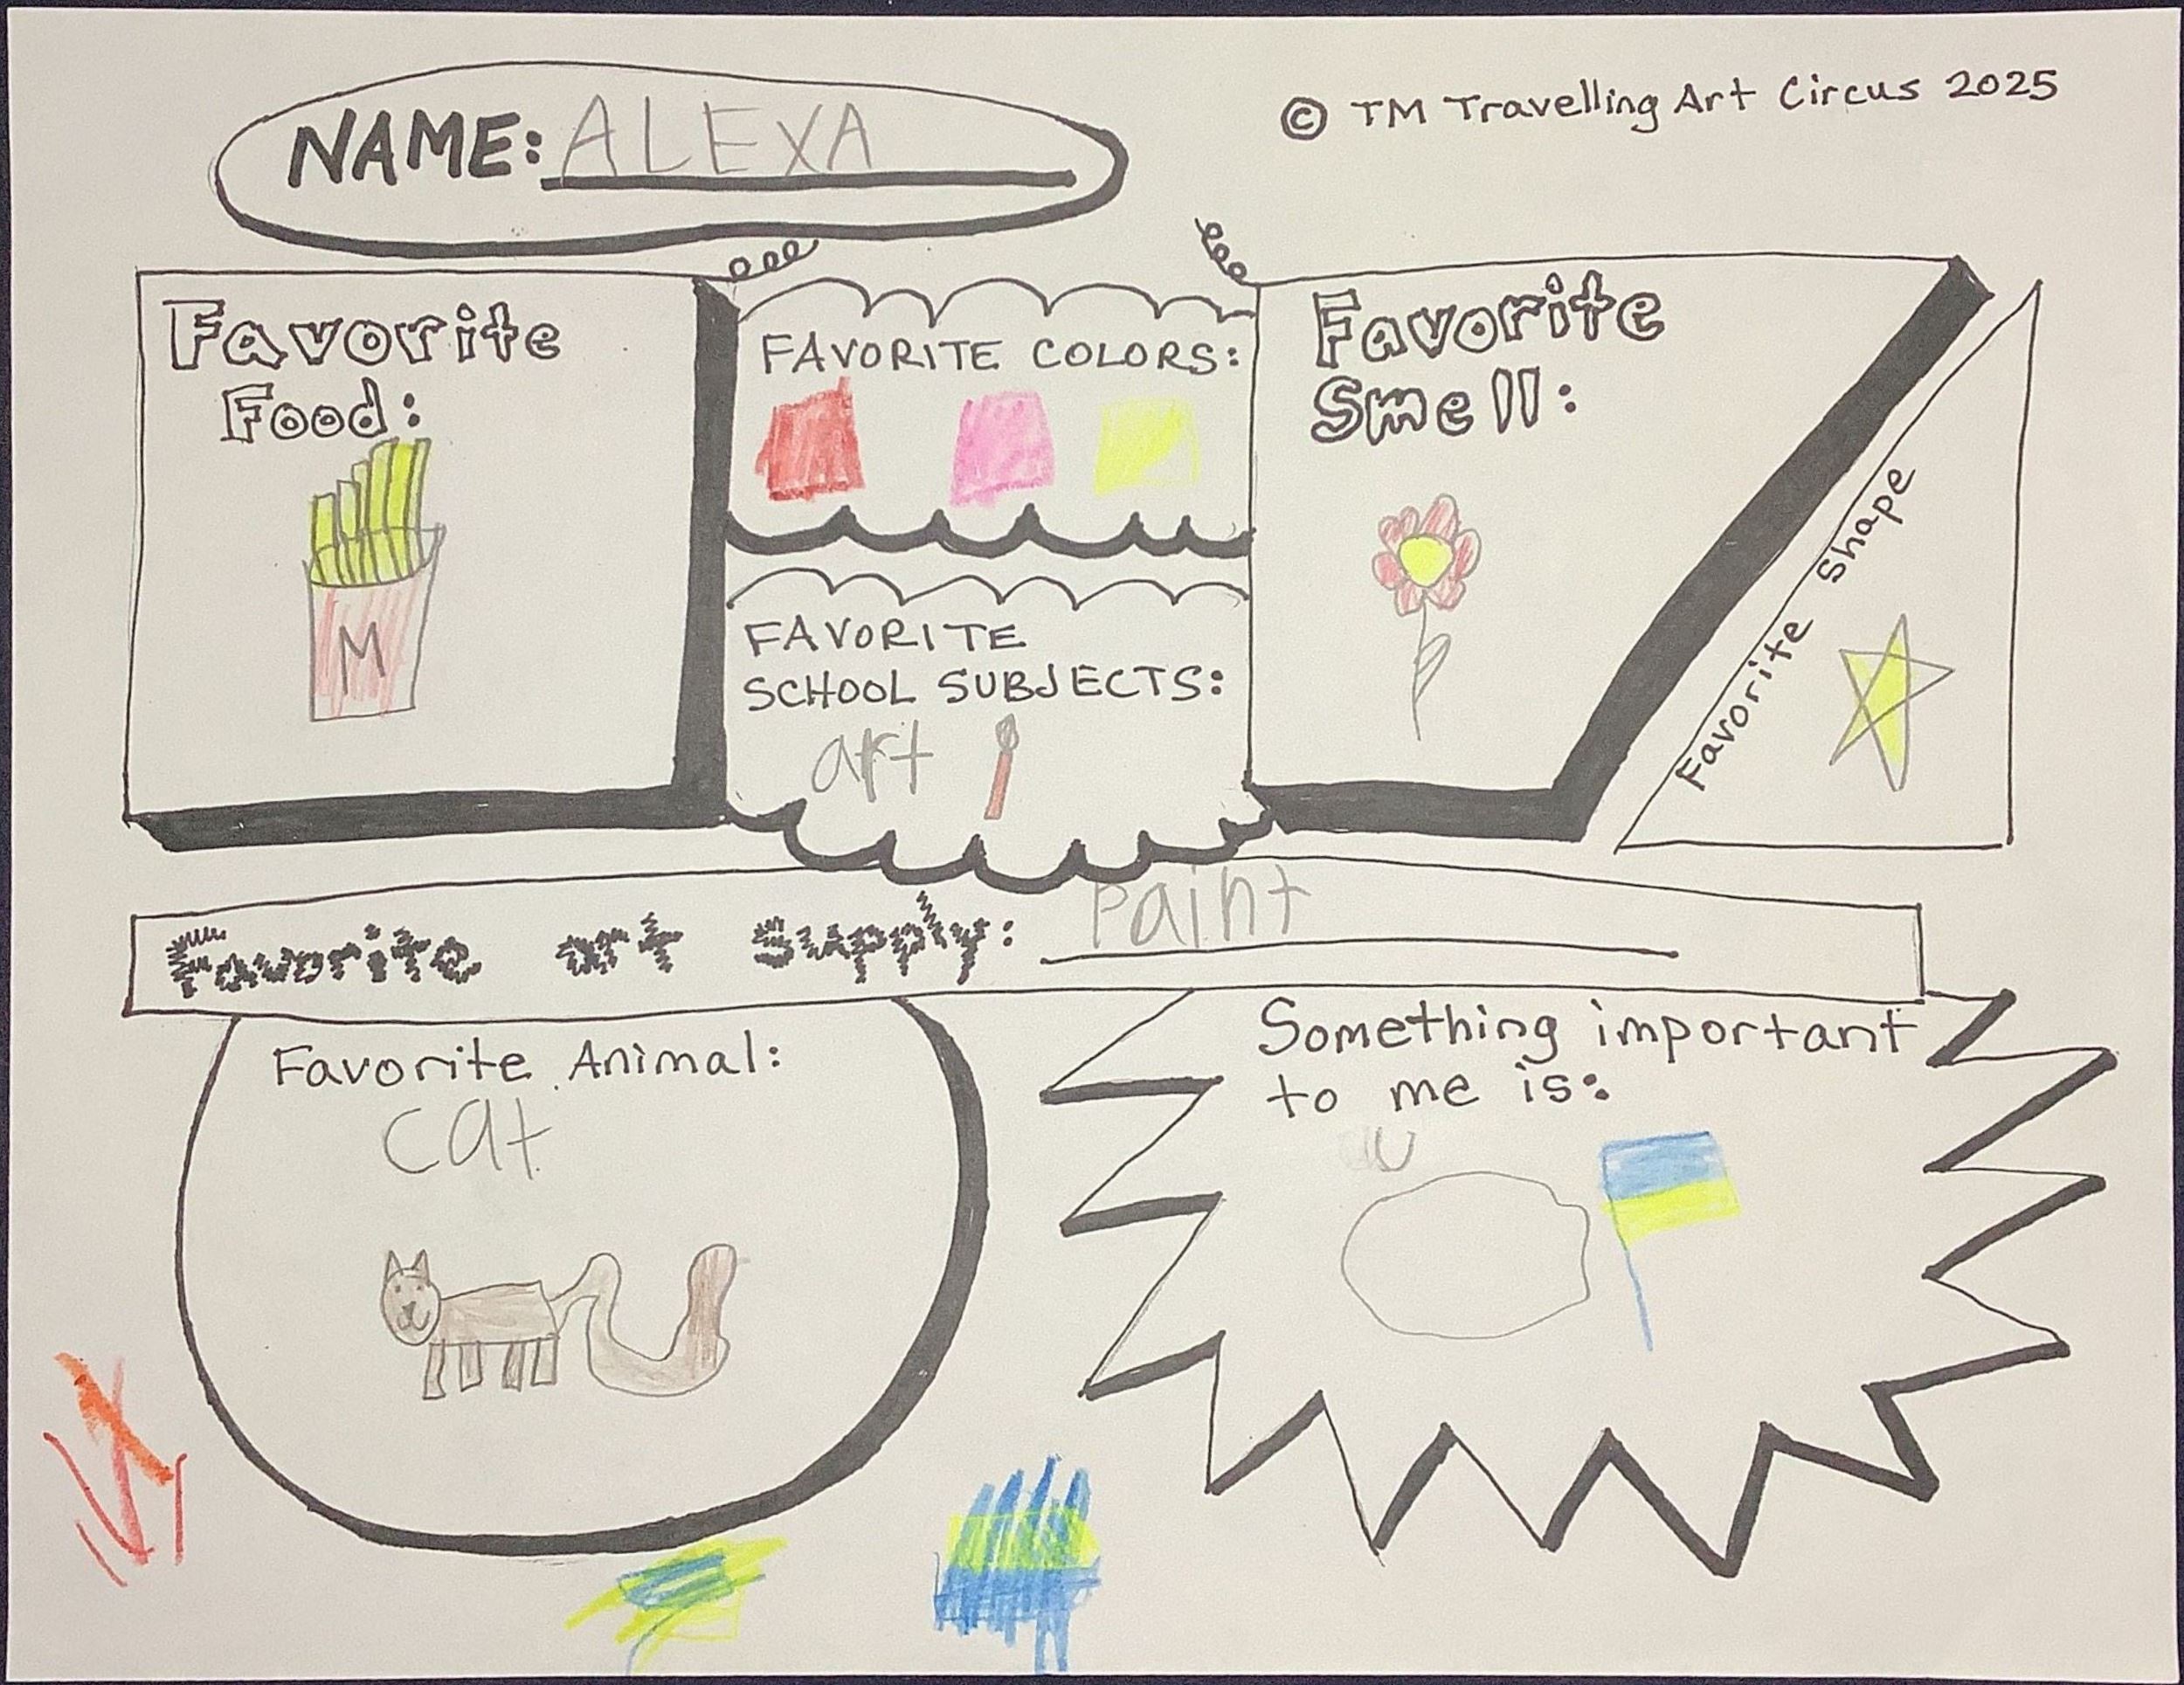 NAME: ALEXA
© TM Travelling Art Circus 2025
Favorite
Food:
M
FAVORITE COLORS:
FAVORITE
SCHOOL SUBJECTS:
art
Favorite
Smell:
Favorite Shape
Favorite art supply: paint
Favorite Animal:
cat
Something important
to me is: